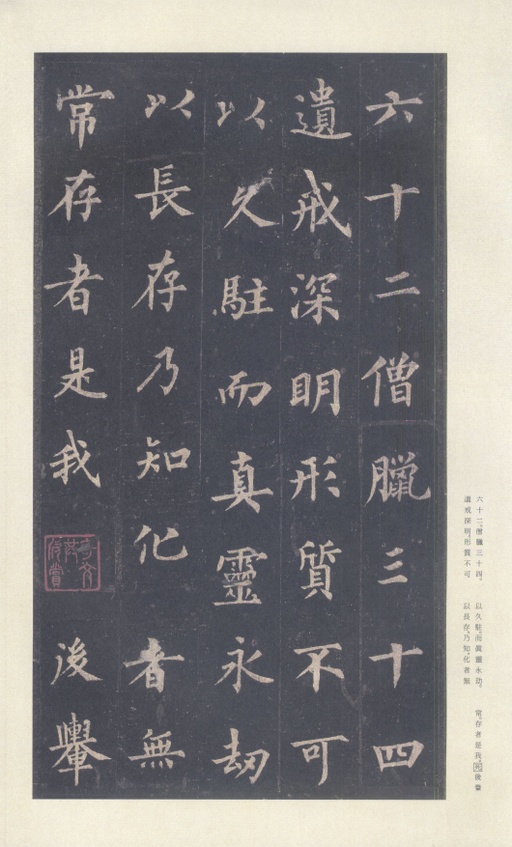 六十二僧臘三十四
遺戒深明形質不可
以久駐而真靈永劫
以長存乃知化者無
常存者是我
後轝
六十二。僧臘三十四。
遺戒深明。形質不可
以久駐。而眞靈永劫。
以長存。乃知。化者無
常。存者是我。後轝